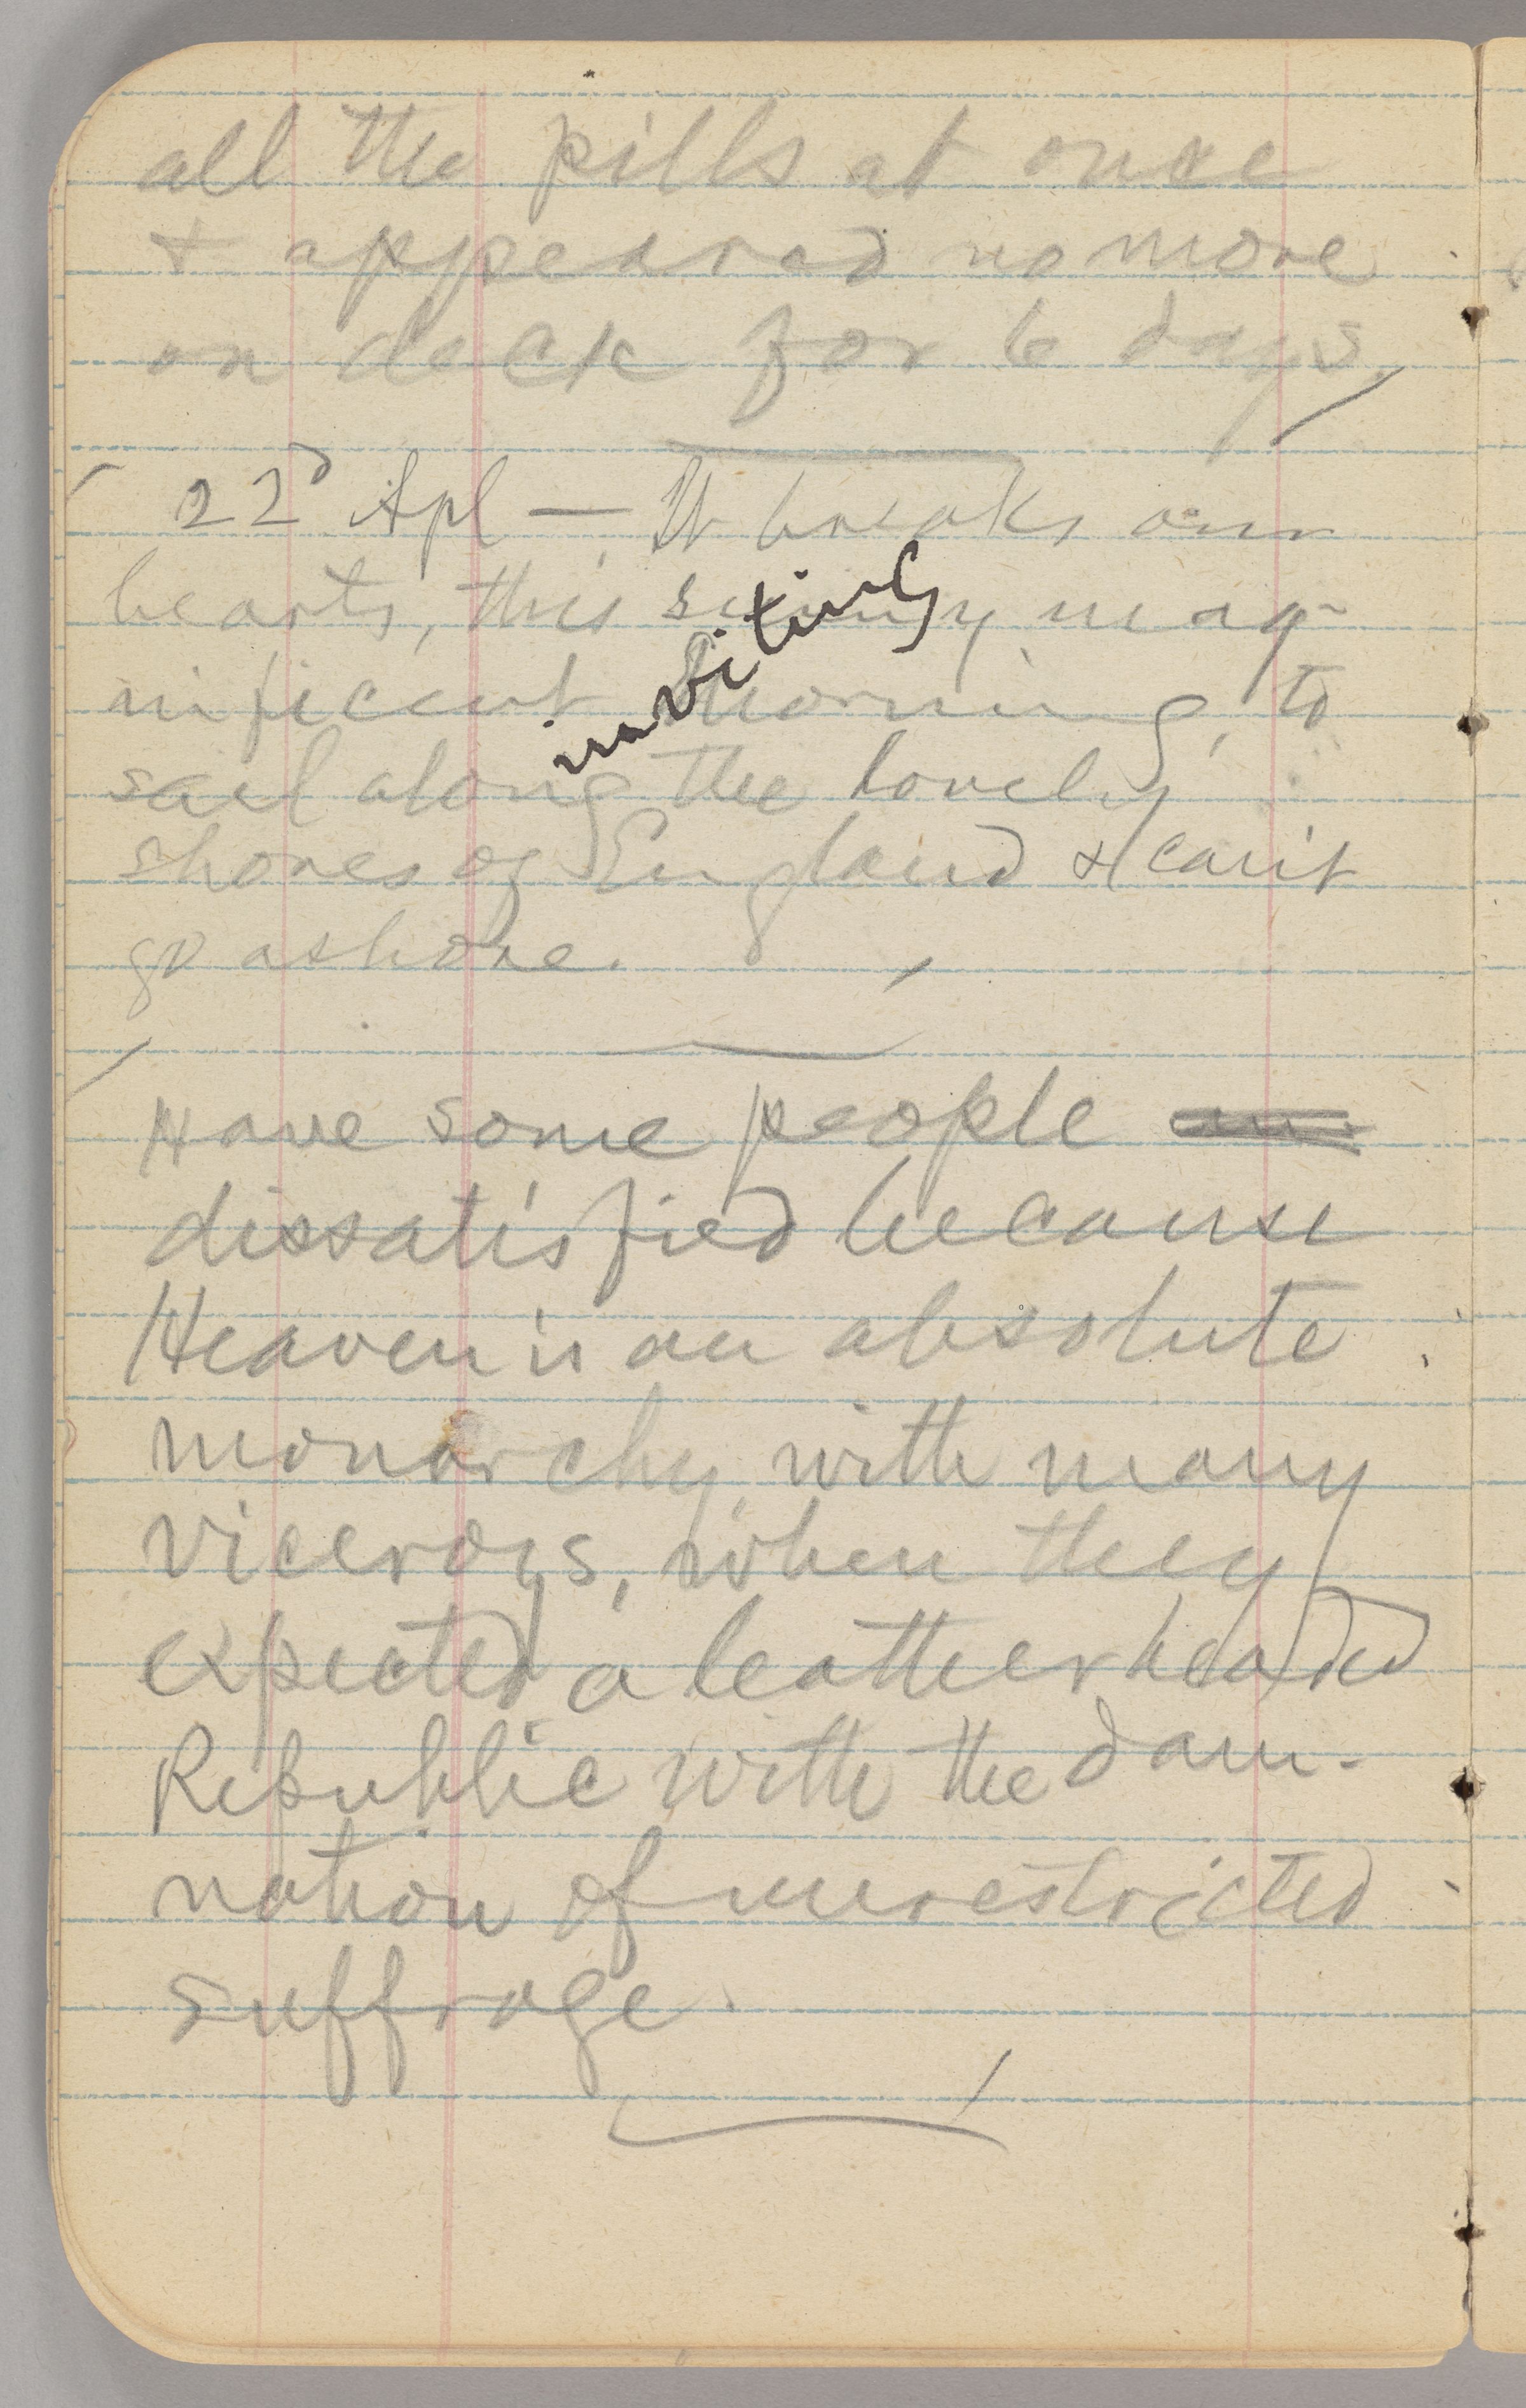 all the pills at once
& appeared no more
on deck for 6 days.
22d Apl — It breaks our
hearts, this sunny mag-
nificent morning, to
invitingly
sail along the lovely
shores of England & can't
go ashore.
Have some people
dissatisfied because
Heaven is an absolute
monarchy, with many
viceroys, when they
expected a leatherheaded
Republic with the dam-
nation of unrestricted
suffrage.